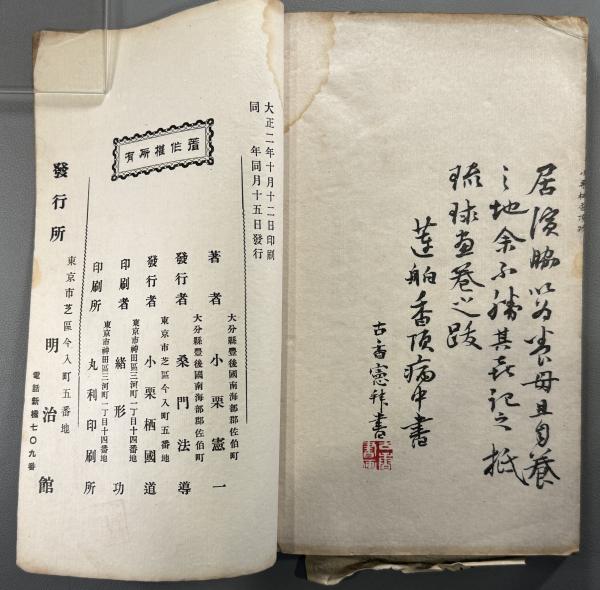 居濱脇以為養母且自養
之地余不勝其喜記之抵
琉球画巻之跋
蓮舶香頂病中書
古香憲拝書
大正二年十月十二日印刷
同年同月十五日發行
著作權所有
大分縣豊後國南海部郡佐伯町
著者 小栗憲一
大分縣豊後國南海部郡佐伯町
發行者 桑門法導
東京市芝區今入町五番地
發行者 小栗栖國道
東京市神田區三河町一丁目十四番地
印刷者 緒形功
東京市神田區三河町一丁目十四番地
印刷所 丸利印刷所
發行所
東京市芝區今入町五番地
明治館
電話新橋七〇九番